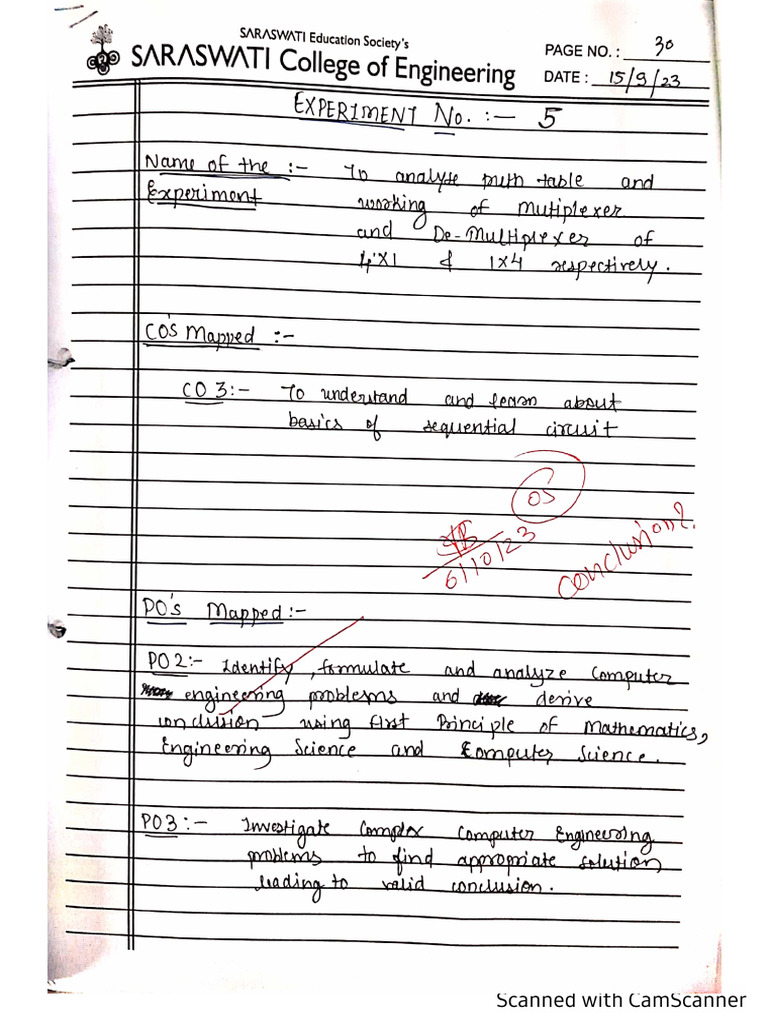 SARASWATI Education Society's
SARASWATI College of Engineering
PAGE NO. : 30
DATE : 15/9/23
EXPERIMENT No. :- 5
Name of the :- To analyse truth table and
Experiment working of Mutiplexer
and De-Multiplexer of
4x1 & 1x4 respectively.
CO's Mapped :-
CO 3:- To understand and learn about
basics of sequential circuit
05
6/10/23
Conclusion?
PO's Mapped:-
PO2:- Identify, formulate and analyze Computer
engineering problems and derive
conclusion using first Principle of Mathematics,
Engineering Science and Computer Science.
PO3:- Investigate Complex Computer Engineering
problems to find appropriate solution
leading to valid conclusion.
Scanned with CamScanner